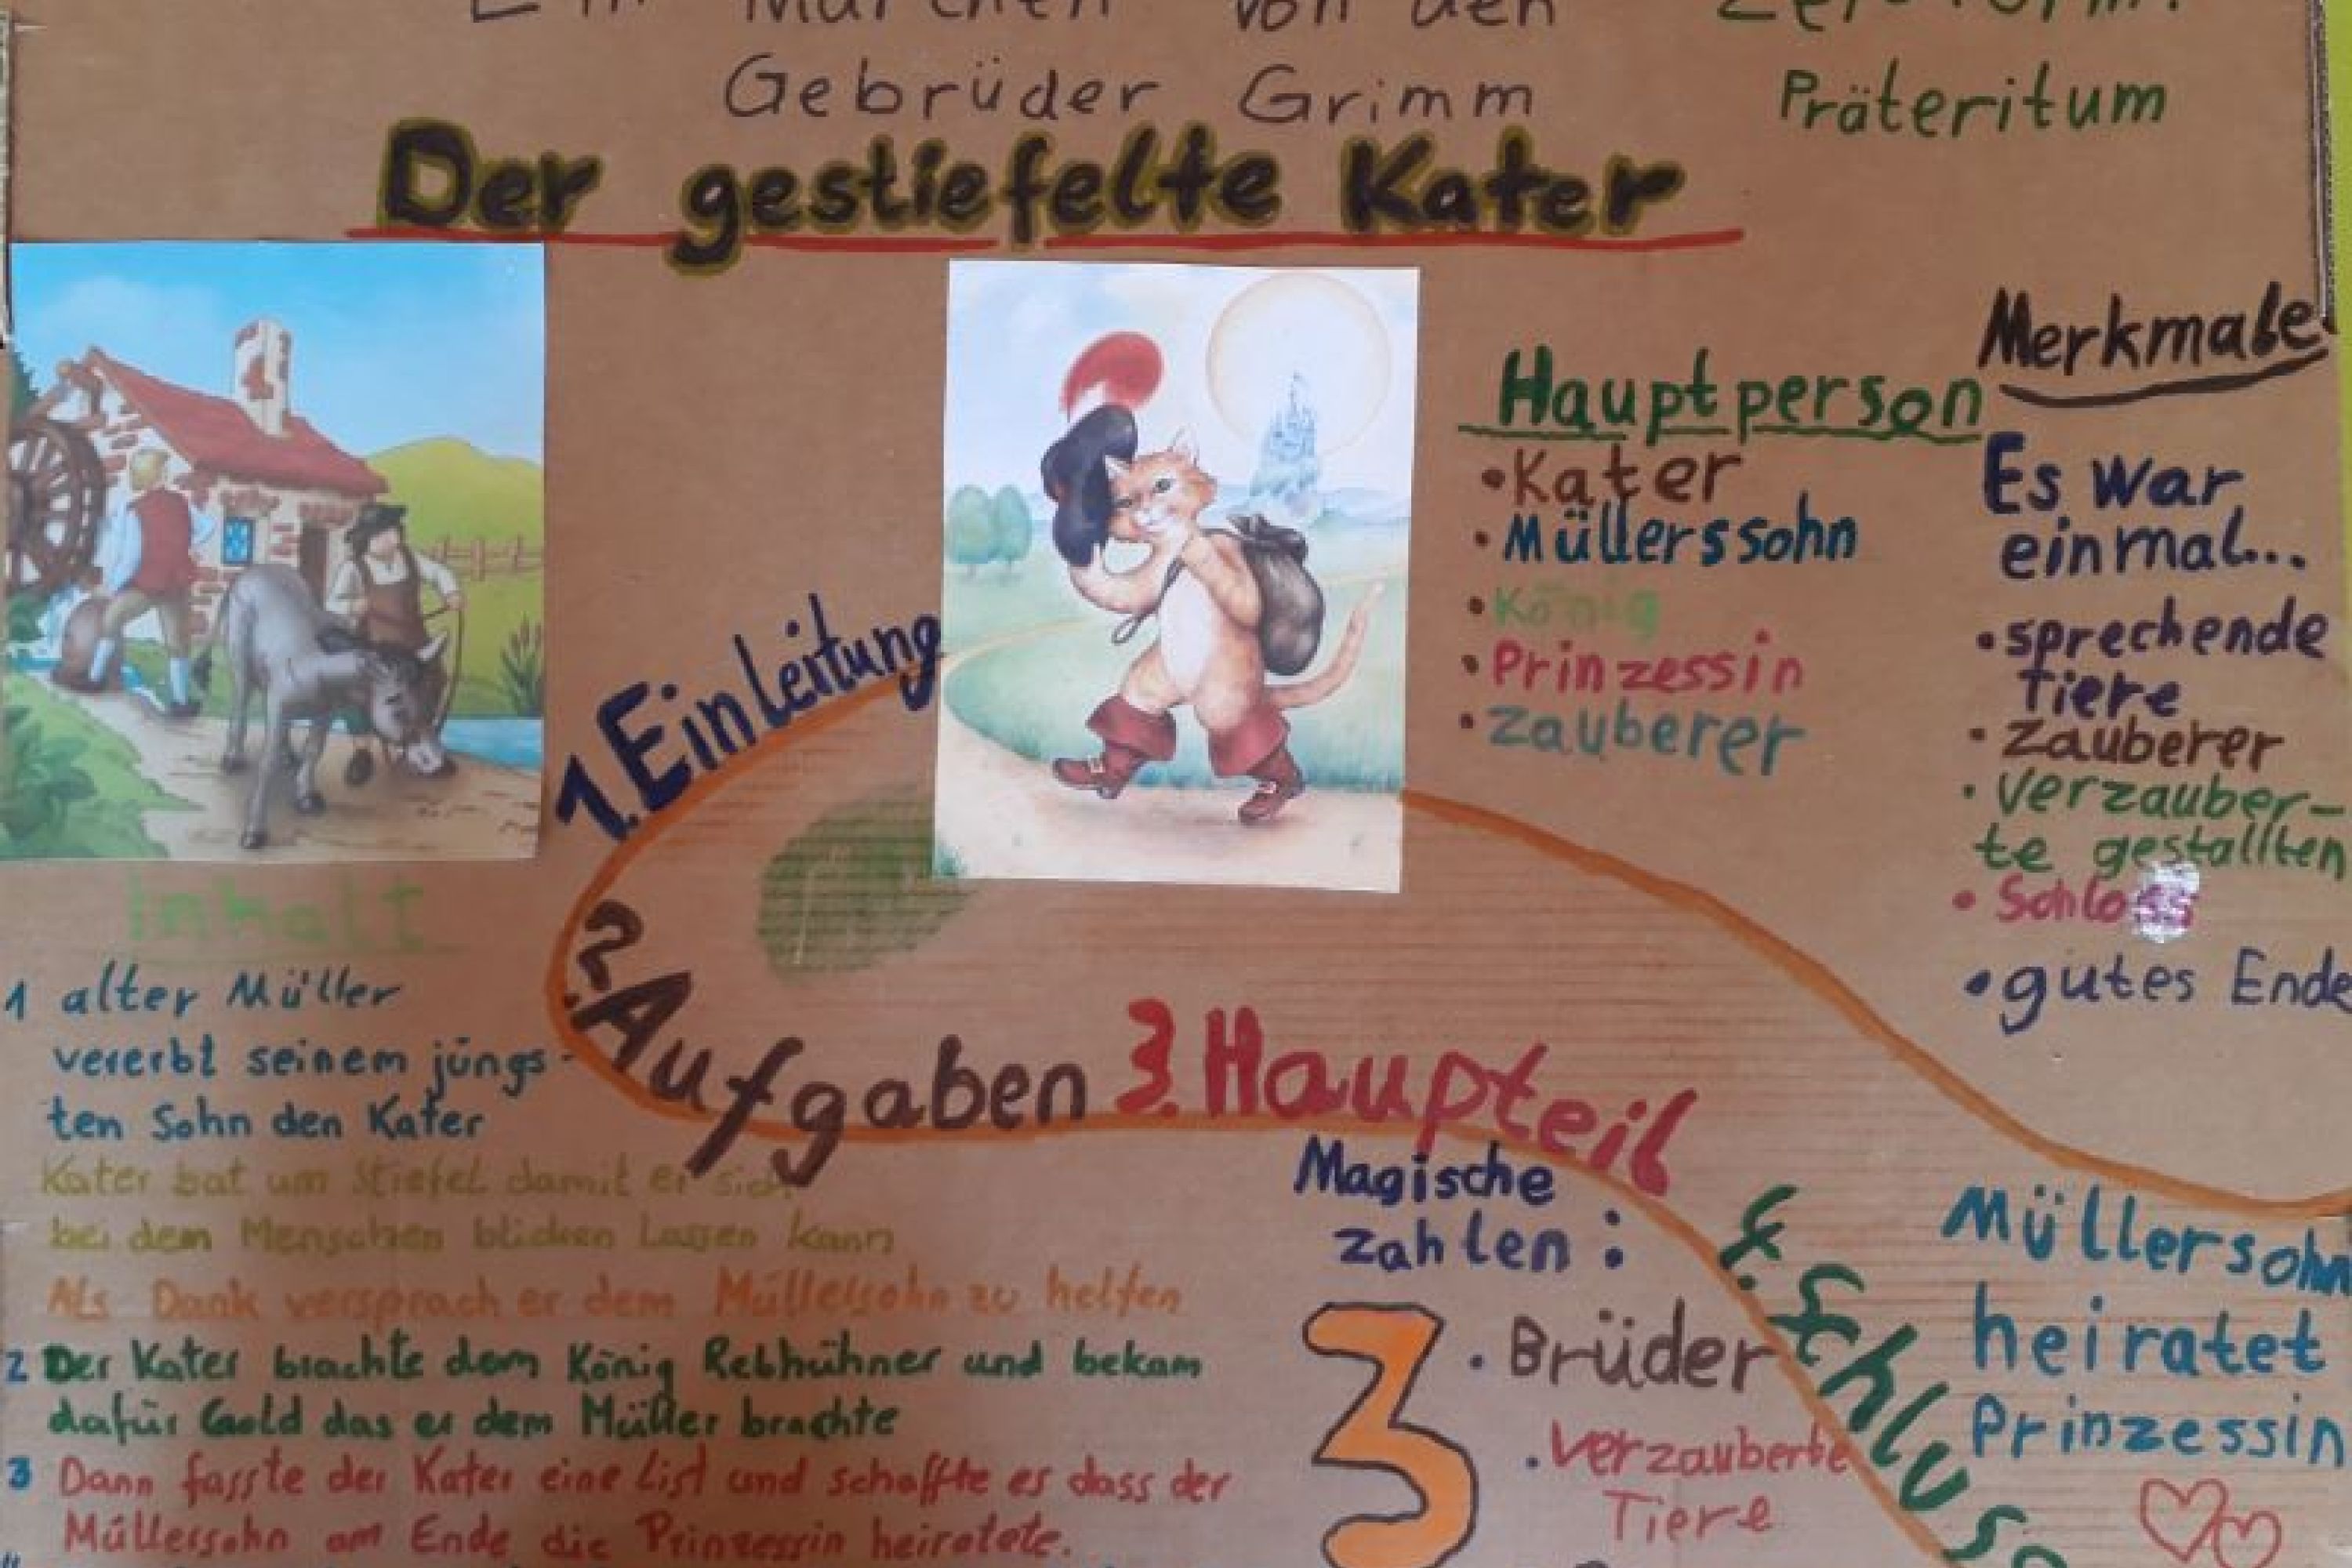 Ein Märchen von den
Gebrüder Grimm
Zeitform:
Präteritum
Der gestiefelte Kater
Hauptperson
• Kater
• Müllerssohn
• König
• Prinzessin
• Zauberer
Merkmale
Es war
einmal...
• sprechende
Tiere
• Zauberer
• verzauber-
te gestallten
• Schloss
• gutes Ende
1. Einleitung
2. Aufgaben
3. Haupteil
4. Schluss
Inhalt
1 alter Müller
vererbt seinem jüngs-
ten Sohn den Kater
Kater bat um Stiefel damit er sich
bei dem Menschen blicken lassen kann
Als Dank versprach er dem Müllersohn zu helfen
2 Der Kater brachte dem König Rebhühner und bekam
dafür Gold das er dem Müller brachte
3 Dann fasste der Kater eine List und schaffte es dass der
Müllerssohn am Ende die Prinzessin heiratete.
Magische
zahlen :
3
• Brüder
• verzauberte
Tiere
Müllersohn
heiratet
Prinzessin